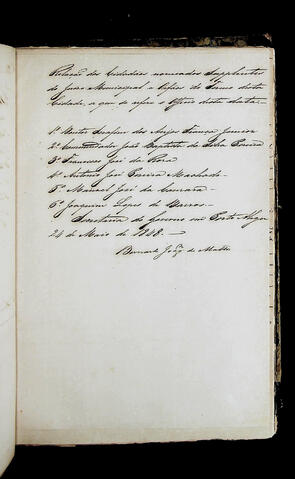 Relação dos Cidadãos nomeados Supplentes
do Juiz Municipal e Orfãos do Termo desta
Cidade, a que se refere o Officio desta data.
1º Serafim dos Anjos França Junior
2º Commendador João Baptista da Silva Pereira
3º Francisco José da Roza
4º Antonio José Pereira Machado.
5º Manoel José da Camara.
6º Joaquim Lopes de Barros.
Secretaria do Governo em Porto Alegre
24 de Maio de 1848.
Bernardo de Mattos